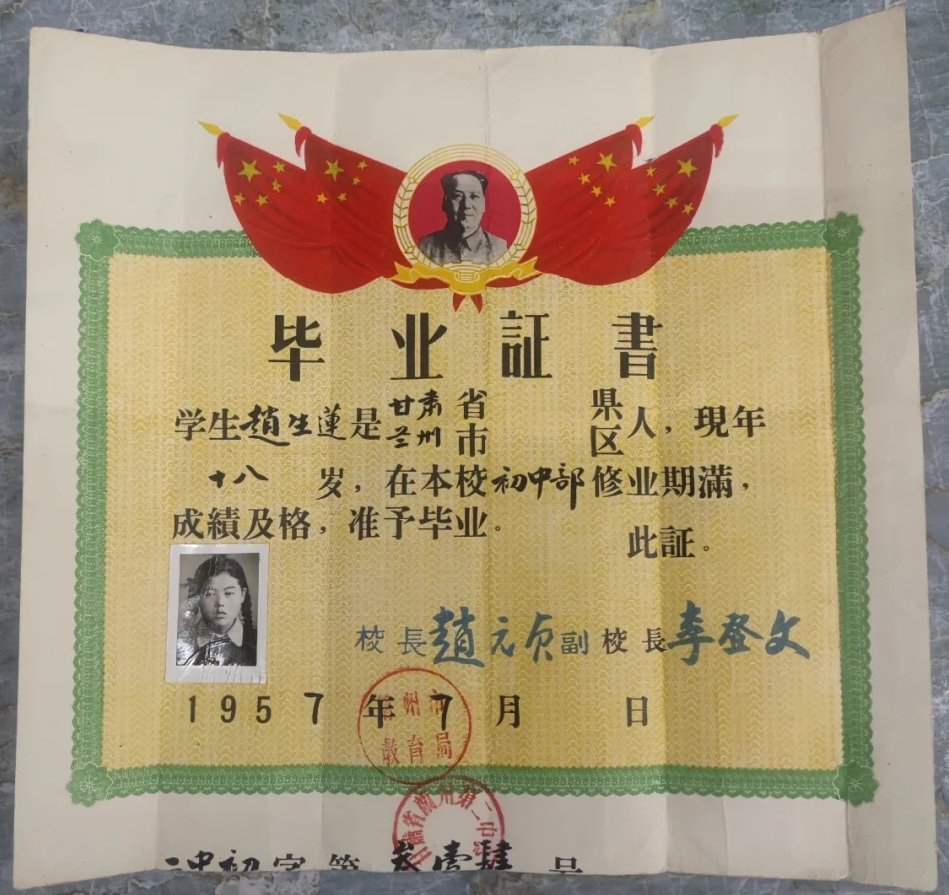 毕业証書
学生趙生蓮是甘肃省兰州市 県区人，現年
十八岁，在本校初中部修业期滿，
成績及格，准予毕业。
此証。
校長趙元贞副校長李登文
1957年7月 日
州市
教育局
甘肅省蘭州第二中
二中初字第叁壹肆号